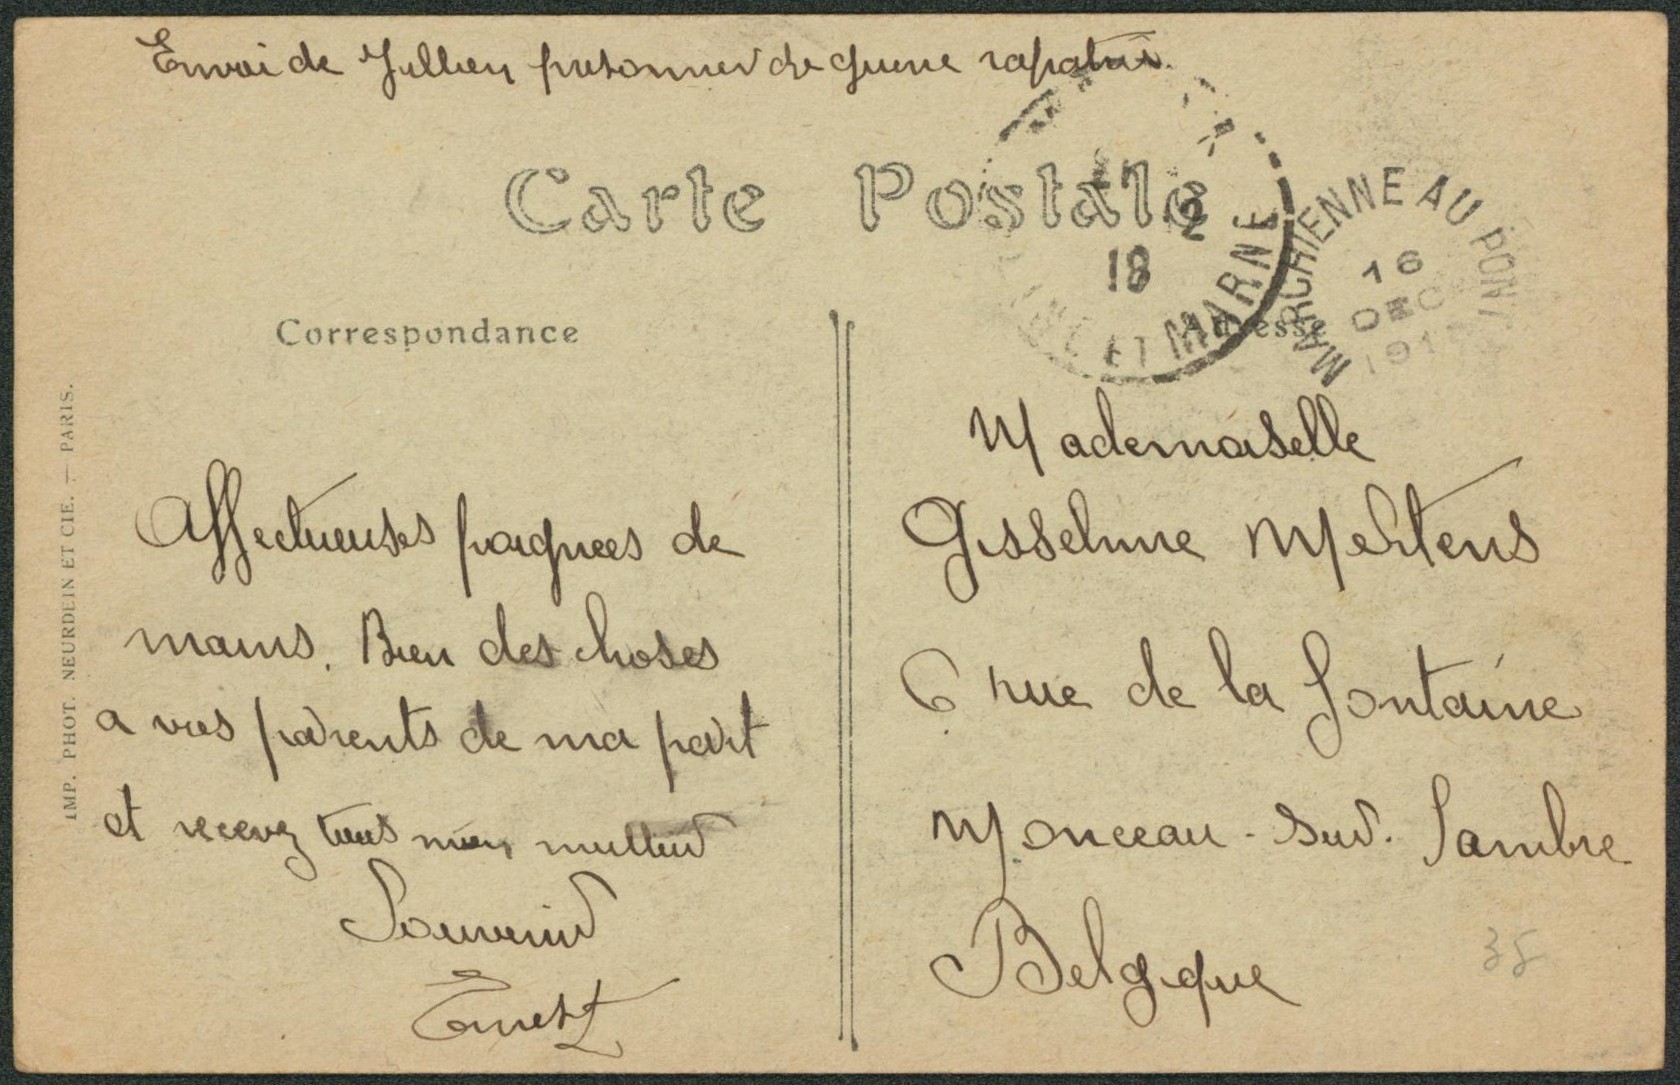 Envoi de Jullien prisonnier de guerre rapatrié.
Carte Postale
Correspondance
Adresse
2
18
ET MARNE
MARCHIENNE AU PONT
16
DEC
191
IMP. PHOT. NEURDEIN ET CIE. — PARIS.
Affectueuses poignees de
mains. Bien des choses
a vos parents de ma part
et recevez tous mon meilleur
Souvenir
Ernest
Mademoiselle
Gisseline Mertens
6 rue de la fontaine
Monceau - Sur. Sambre
Belgique
35